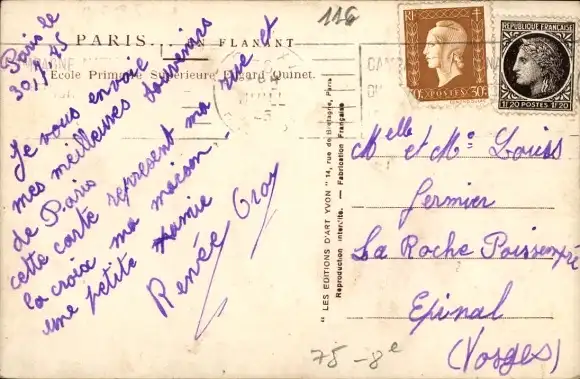 116
PARIS... EN FLANANT
École Primaire Supérieure Edgard Quinet.
Paris le
30.1.45
Je vous envoie
mes meilleures souvenirs
de Paris
cette carte represent ma rue et
la croix ma maison.
une petite mamie
Renée Gray
" LES EDITIONS D'ART YVON " 14, rue de Bretagne, Paris
Reproduction interdite. — Fabrication Française
RF
POSTES
30c
RÉPUBLIQUE FRANÇAISE
1F20 POSTES 1F20
Melle et Mr Louis
Fermier
La Roche Poissempré
Epinal
(Vosges)
75 - 8e